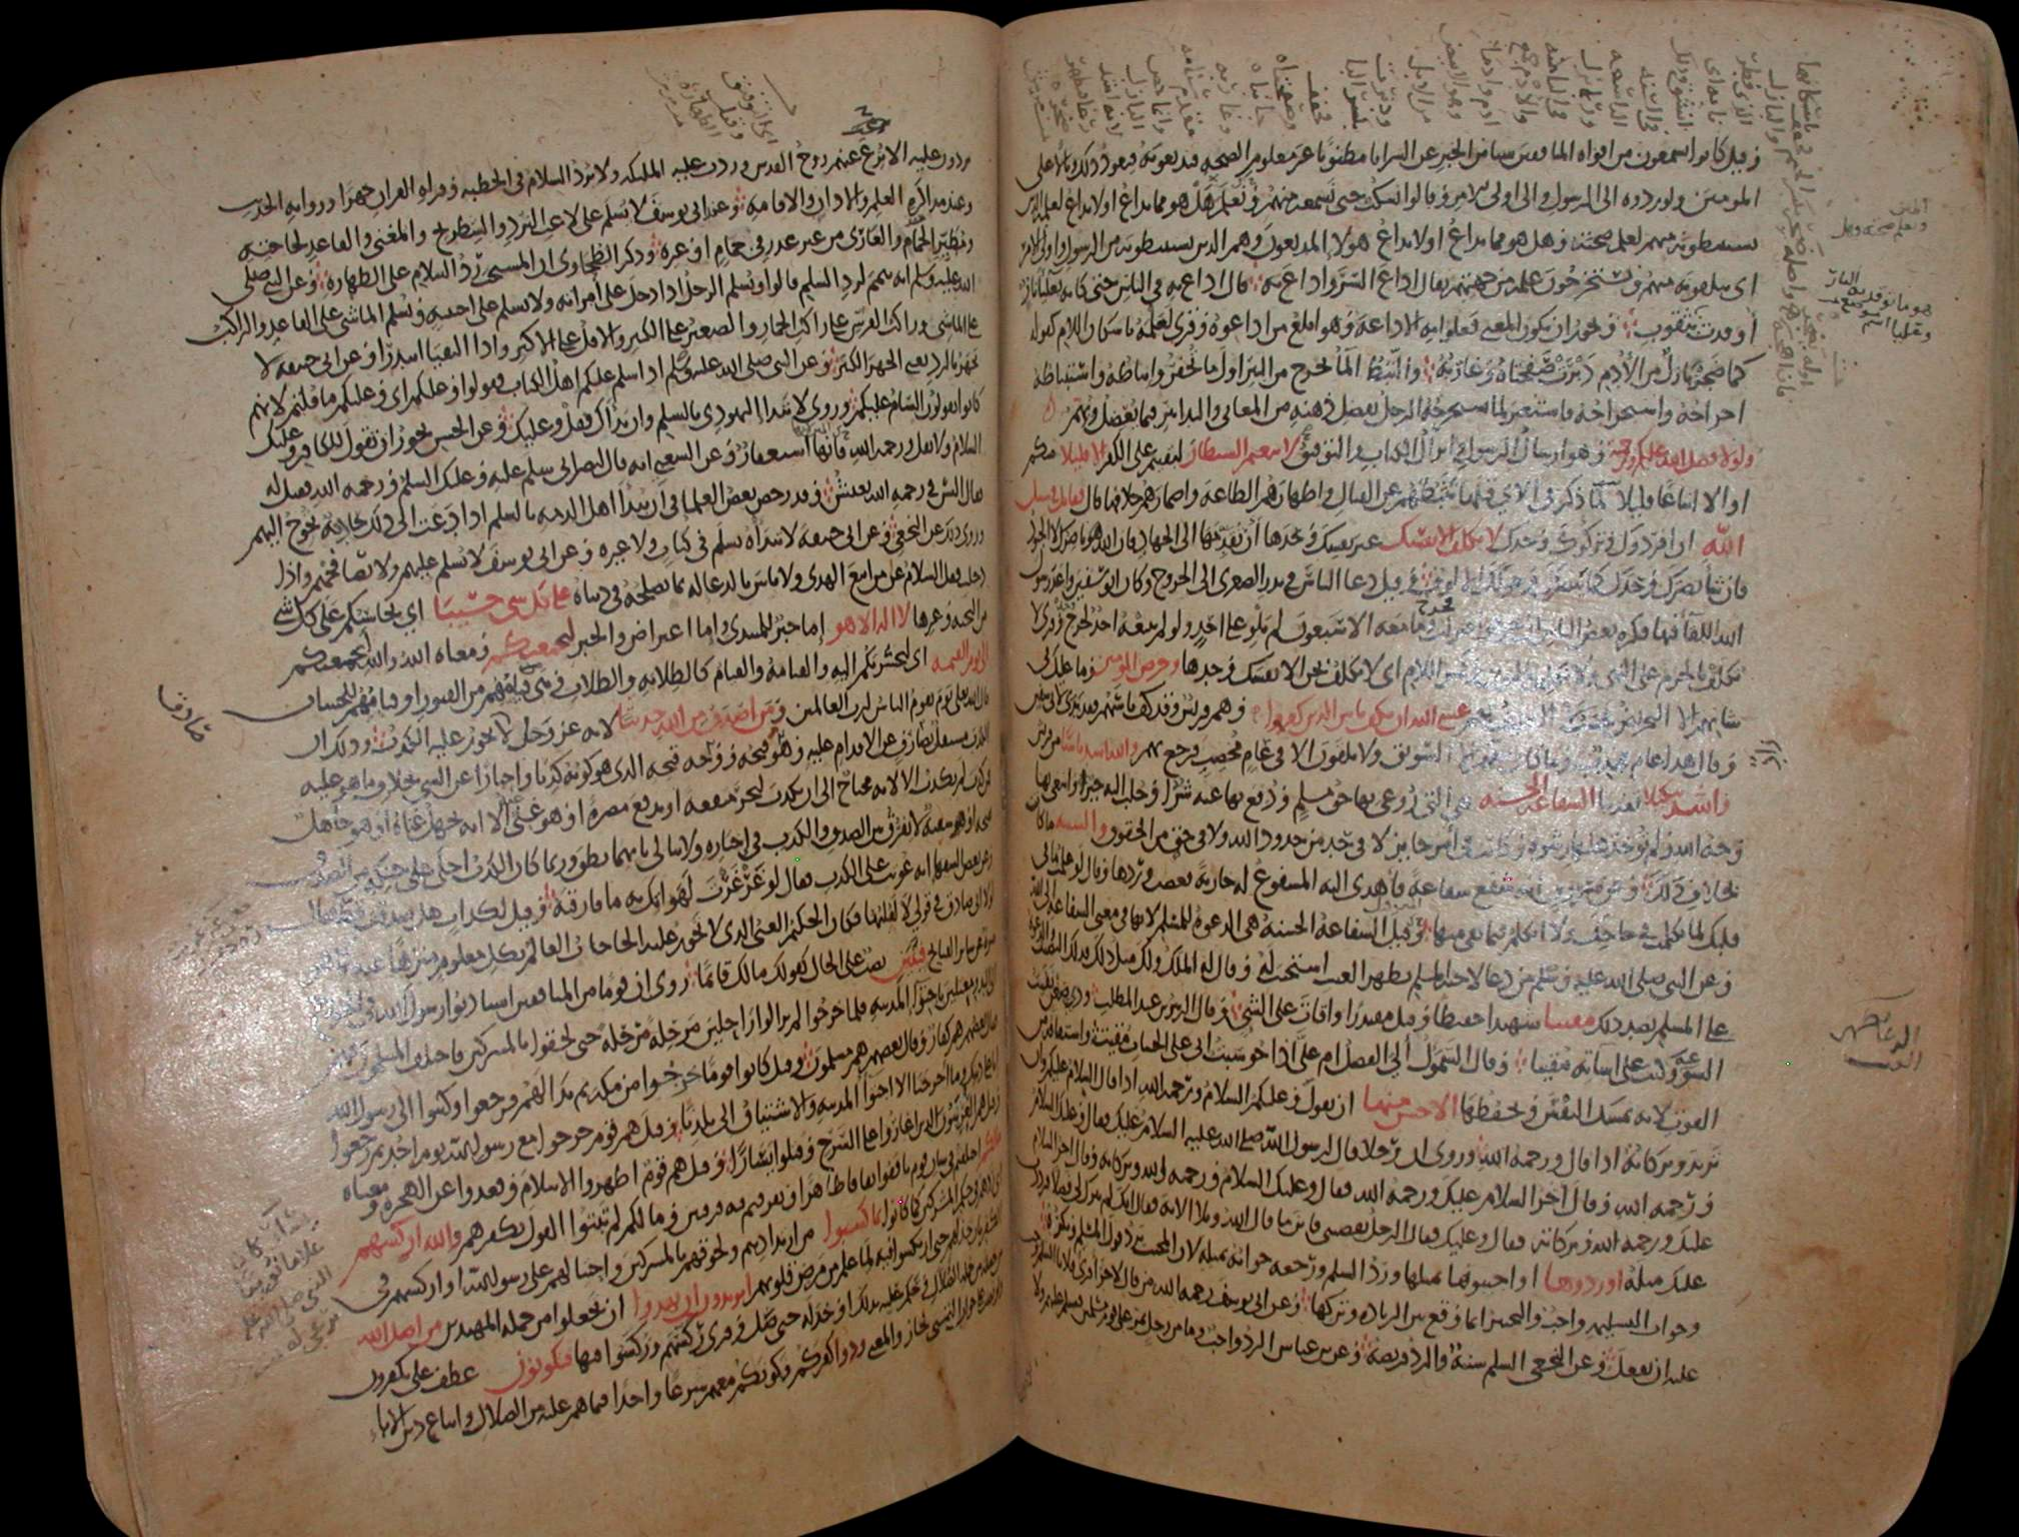 وقيل كانوا يسمعون من افواه المنافقين شيئا من الخبر عن السرايا مظنونا غير معلوم الصحة فيذيعونه فيعود ذلك وبالا على
المؤمنين ولو ردوه الى الرسول والى اولى الامر وقالوا نسكت حتى نسمعه منهم ونعلم هل هو مما يذاع او لا يذاع لعلمه الذين
يستنبطونه منهم لعلم صحته وهل هو مما يذاع او لا يذاع هؤلاء المذيعون وهم الذين يستنبطونه من الرسول واولى الامر
اى يتلقونه منهم ويستخرجون علمه من جهتهم يقال اذاع السر واذاع به قال اذاع به في الناس حتى كانه بعلياء نار
اوقدت بثقوب ويجوز ان يكون المعنى فعلوا به الاذاعة وهو ابلغ من اذاعوه وقرئ لعلمه باسكان اللام كقوله
كما ضجر بازل من الادم دبرت صفحتاه وغاربه والنبط الماء يخرج من البئر اول ما تحفر وانباطه واستنباطه
اخراجه واستخراجه فاستعير لما يستخرجه الرجل بفضل ذهنه من المعانى والتدابير فيما يعضل ويهم
ولولا فضل الله عليكم ورحمته وهو ارسال الرسول وانزال الكتاب والتوفيق لاتبعتم الشيطان لبقيتم على الكفر الا قليلا منكم
او الا اتباعا قليلا لما ذكر في الآى قبلها تثبطهم عن القتال واظهارهم الطاعة واضمارهم خلافها قال فقاتل في سبيل
الله ان افردوك وتركوك وحدك لا تكلف الا نفسك غير نفسك وحدها ان تقدمها الى الجهاد فان الله هو ناصرك لا الجنود
فان شاء نصرك وحدك كما ينصرك وحولك الالوف وقيل دعا الناس في بدر الصغرى الى الخروج وكان ابو سفين واعد رسول
الله اللقاء فيها فكره بعض الناس ان يخرجوا فنزلت فخرج وما معه الا سبعون لم يلو على احد ولو لم يتبعه احد لخرج وحده وقرئ لا
تكلف بالجزم على النهى ولا نكلف بالنون وكسر اللام اى لا نكلف نحن الا نفسك وحدها وحرض المؤمنين وما عليك في
شانهم الا التحريض فحسب عسى الله ان يكف باس الذين كفروا وهم قريش وقد كف باسهم فقد بدا لابى سفين
وقال هذا عام مجدب وما كان معهم زاد الا السويق ولا يلقون الا في عام مخصب فرجع بهم والله اشد باسا من قريش
واشد تنكيلا تعذيبا الشفاعة الحسنة هى التى روعى بها حق مسلم ودفع بها عنه شر او جلب اليه خير وابتغى بها
وجه الله ولم توخذ عليها رشوة وكانت في امر جائز لا في حد من حدود الله ولا في حق من الحقوق والسيئة ما كان
بخلاف ذلك وعن مسروق انه شفع شفاعة فاهدى اليه المشفوع له جارية فغضب وردها وقال لو علمت ما في
قلبك لما تكلمت في حاجتك ولا اتكلم فيما بقى منها وقيل الشفاعة الحسنة هى الدعوة للمسلم لانها في معنى الشفاعة الى الله
وعن النبى صلى الله عليه وسلم من دعا لاخيه المسلم بظهر الغيب استجيب له وقال له الملك ولك مثل ذلك فذلك النصيب والدعوة
على المسلم بضد ذلك مقيتا شهيدا حفيظا وقيل مقتدرا واقات على الشئ وقال الزبير بن عبد المطلب وذى ضغن كففت
السوء عنه وكنت على اساءته مقيتا وقال السموال الى الفضل ام على اذا حوسبت انى على الحساب مقيت واشتقاقه من
القوت لانه يمسك النفس ويحفظها الاحسن منها ان تقول وعليكم السلام ورحمة الله اذا قال السلام عليكم وان
تزيد وبركاته اذا قال ورحمة الله وروى ان رجلا قال لرسول الله صلى الله عليه السلام عليك فقال وعليك السلام
ورحمة الله وقال آخر السلام عليك ورحمة الله فقال وعليك السلام ورحمة الله وبركاته وقال آخر السلام
عليك ورحمة الله وبركاته فقال وعليك فقال الرجل نقصتنى فاين ما قال الله وتلا الآية فقال انك لم تترك لى فضلا فرددت
عليك مثله او ردوها او اجيبوها بمثلها ورد السلم ورجعه جوابه بمثله لان المجيب يرد قول المسلم ويكرره
وجواب التسليم واجب والتخيير انما وقع بين الزيادة وتركها وعن ابى يوسف رحمه الله من قال لآخر اقرئ فلانا السلام وجب
عليه ان يفعل وعن النخعى السلم سنة والرد فريضة وعن ابن عباس الرد واجب وما من رجل يمر على قوم مسلمين فيسلم عليهم ولا
يردون عليه الا نزع عنهم روح القدس وردت عليه الملئكة ولا يرد السلام في الخطبة وقراة القران جهرا ورواية الحديث
وعند مذاكرة العلم والاذان والاقامة وعن ابى يوسف لا تسلم على لاعب النرد والشطرنج والمغنى والقاعد لحاجته
ومطير الحمام والعارى من غير عذر في حمام او غيره وذكر الطحاوى ان المستحب رد السلام على الطهارة وعن النبى صلى
الله عليه وسلم انه تيمم لرد السلام قالوا ويسلم الرجل اذا دخل على امراته ولا يسلم على اجنبية ويسلم الماشى على القاعد والراكب
على الماشى وراكب الفرس على راكب الحمار والصغير على الكبير والاقل على الاكثر واذا التقيا ابتدرا وعن ابى حنيفة لا
تجهر بالرد يعنى الجهر الكثير وعن النبى صلى الله عليه وسلم اذا سلم عليكم اهل الكتاب فقولوا وعليكم اى وعليكم ما قلتم لانهم
كانوا يقولون السام عليكم وروى لا تبدا اليهودى بالسلام وان بداك فقل وعليك وعن الحسن يجوز ان تقول للكافر وعليك
السلام ولا تقل ورحمة الله فانها استغفار وعن الشعبى انه قال لنصرانى سلم عليه وعليك السلام ورحمة الله فقيل له
فقال اليس في رحمة الله يعيش وقد رخص بعض العلما في ان يبدا اهل الذمة بالسلم اذا دعت الى ذلك حادثة تحوج اليهم
وروى ذلك عن النخعى وعن ابى حنيفة لا تبداه بسلم في كتاب ولا غيره وعن ابى يوسف لا تسلم عليهم ولا تصافحهم واذا
دخلت فقل السلام على من اتبع الهدى ولا باس بالدعا له بما يصلحه في دنياه على كل شى حسيبا اى يحاسبكم على كل شئ
من التحية وغيرها لا اله الا هو اما خبر للمبتدى واما اعتراض والخبر ليجمعنكم ومعناه الله والله ليجمعنكم
الى يوم القيمة اى ليحشرنكم اليه والقيامة والقيام كالطلابة والطلاب وهى قيامهم من القبور او قيامهم للحساب
قال الله تعالى يوم يقوم الناس لرب العالمين ومن اصدق من الله حديثا لانه عز وجل لا يجوز عليه الكذب وذلك ان
الكذب مستقل بصارف عن الاقدام عليه وهو قبحه ووجه قبحه الذى هو كونه كذبا واخبارا عن الشى بخلاف ما هو عليه
فمن كذب لم يكذب الا لانه محتاج الى ان يكذب ليجر منفعة او يدفع مضرة او هو غنى عنه الا انه يجهل غناه او هو جاهل
بقبحه او هو سفيه لا يفرق بين الصدق والكذب في اخباره ولا يبالى بايهما نطق وربما كان الكذب احلى على حنكه من الصدق
وعن بعض السفها انه عوتب على الكذب فقال لو غرغرت لهواتك به ما فارقته وقيل لكذاب هل صدقت قط فقال
لولا انى صادق في قولى لا لقلتها فكان الحكيم الغنى الذى لا تجوز عليه الحاجات العالم بكل معلوم منزها عنه كما هو
منزه عن ساير القبايح فئتين نصب على الحال كقولك مالك قائما روى ان قوما من المنافقين استاذنوا رسول الله في الخروج
الى البدو معتلين باجتواء المدينة فلما خرجوا لم يزالوا راحلين مرحلة مرحلة حتى لحقوا بالمشركين فاختلف المسلمون فيهم
فقال بعضهم هم كفار وقال بعضهم هم مسلمون وقيل كانوا قوما هاجروا من مكة ثم بدا لهم فرجعوا وكتبوا الى رسول الله
انا على دينك وما اخرجنا الا اجتواء المدينة والاشتياق الى بلدنا وقيل هم قوم خرجوا مع رسول الله يوم احد ثم رجعوا
وقيل هم العرنيون الذين اغاروا على السرح وقتلوا يسارا وقيل هم قوم اظهروا الاسلام وقعدوا عن الهجرة ومعناه
مالكم اختلفتم في شان قوم نافقوا نفاقا ظاهرا وتفرقتم فيه فرقتين وما لكم لم تبتوا القول بكفرهم والله اركسهم
اى ردهم في حكم المشركين كما كانوا بما كسبوا من ارتدادهم ولحوقهم بالمشركين واحتيالهم على رسول الله او اركسهم في
الكفر بان خذلهم حتى اركسوا فيه لما علم من مرض قلوبهم اتريدون ان تهدوا ان تجعلوا من جملة المهتدين من اضل الله
من جعله من جملة الضلال وحكم عليه بذلك او خذله حتى ضل وقرئ ركسهم وركسوا فيها فتكونون عطف على تكفرون
ولو نصب على جواب التمنى لجاز والمعنى ودوا كفركم وكونكم معهم شرعا واحدا فيما هم عليه من الضلال واتباع دين الآباء